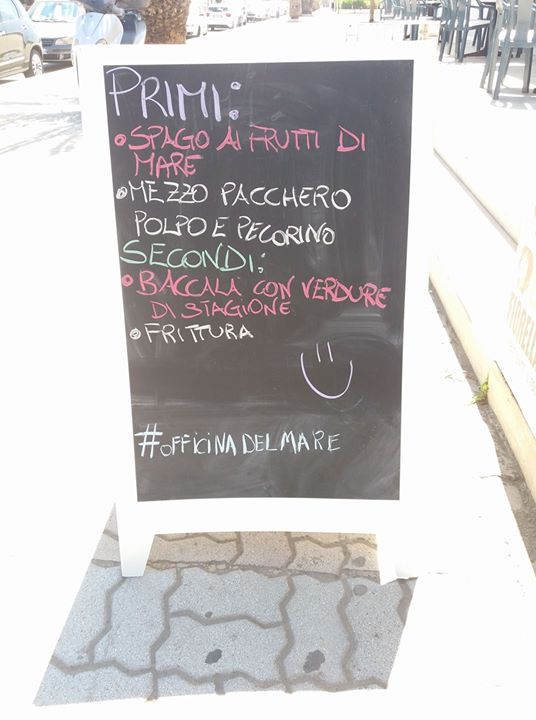 PRIMI:
• SPAGO AI FRUTTI DI
MARE
• MEZZO PACCHERO
POLPO E PECORINO
SECONDI:
• BACCALÀ CON VERDURE
DI STAGIONE
• FRITTURA
#OFFICINADELMARE